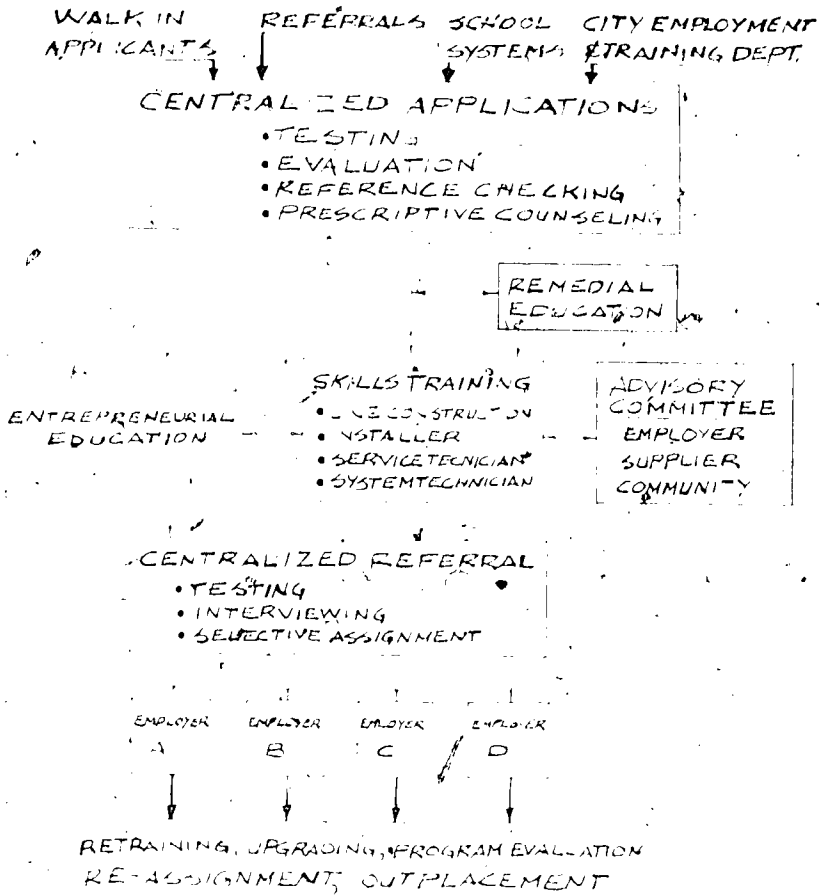 WALK IN REFERRALS SCHOOL CITY EMPLOYMENT
APPLICANTS SYSTEMS & TRAINING DEPT.
CENTRALIZED APPLICATIONS
• TESTING
• EVALUATION
• REFERENCE CHECKING
• PRESCRIPTIVE COUNSELING
REMEDIAL
EDUCATION
SKILLS TRAINING
• LINE CONSTRUCTION
• INSTALLER
• SERVICE TECNICIAN
• SYSTEM TECHNICIAN
ENTREPRENEURIAL
EDUCATION
ADVISORY
COMMITTEE
EMPLOYER
SUPPLIER
COMMUNITY
CENTRALIZED REFERRAL
• TESTING
• INTERVIEWING
• SELECTIVE ASSIGNMENT
EMPLOYER EMPLOYER EMPLOYER EMPLOYER
A B C D
RETRAINING, UPGRADING, PROGRAM EVALUATION
RE-ASSIGNMENT, OUTPLACEMENT